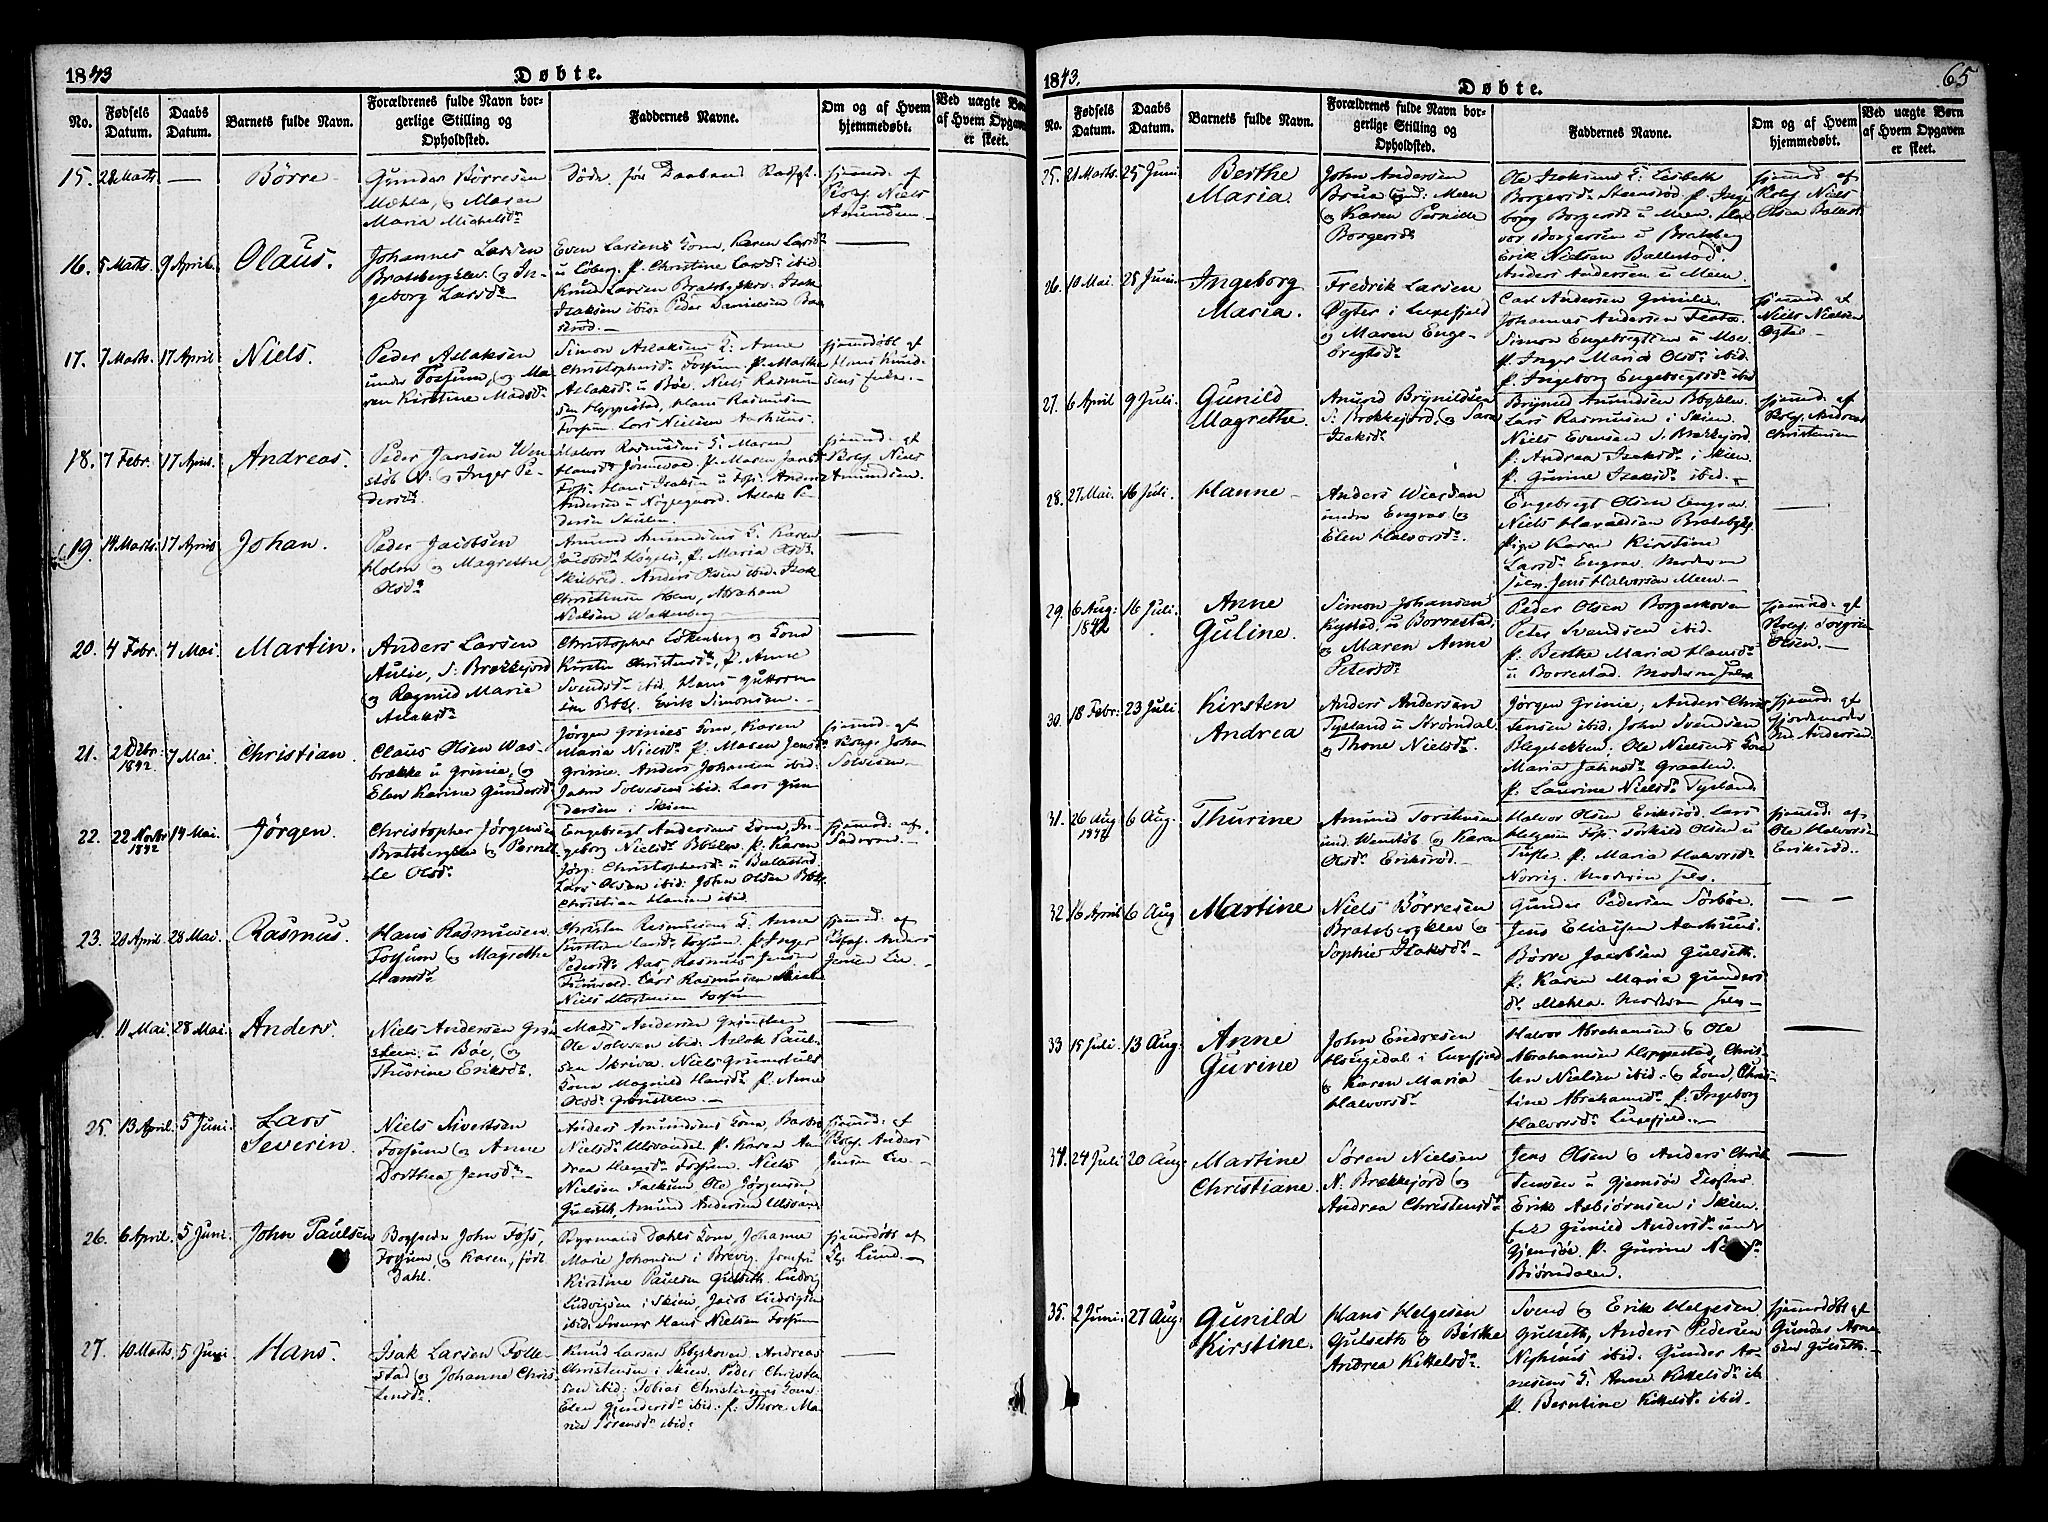 1843
Døbte.
No. Fødsels Datum. Daabs Datum. Barnets fulde Navn. Forældrenes fulde Navn borgerlige Stilling og Opholdsted. Faddernes Navne. Om og af Hvem hjemmedøbt. Ved uægte Børn af Hvem Opgaven er skeet.
15. 28 Marts. — Börre
Gunder Börresen
Mæhla, og Maren
Maria Michelsd.
Döde før Daaben
hjemmed: af
Niels
Amundsen
16. 5 Marts. 9 April. Olaus.
Johannes Larsen
Bratsbergklev. og In-
geborg Larsd.
Even Larsens Kone, Karen Larsd.
u Löberg. P. Christine Larsd. ibid.
Knud Larsen
Isaksen ibid. Peder Danielsen
—
17. 7 Marts. 17 April Niels.
Peder Aslaksen
under Fossum, og Ma-
ren Kirstine Madsd.
Simon Aslaksens K: Anne
Christophersd. Fossum P. Marthe
Aslaksd. u Böe. Niels Rasmus-
sen Hoppestad, Hans Rasmusen
Fossum. Lars Nielsen Aarhuus.
hjemmedøbt af
18. 7 Febr. 17 April. Andreas.
Peder Jansen Wen-
støb og Inger Pe-
dersd.
Halvor Rasmusens K. Maren
Hansd. P. Maren Jansd.
Foss. Hans Isaksen u Foss. Anders
Andersen u Aslak Pe-
dersen
hjemmed: af
Niels
Amundsen.
19. 14 Marts. 17 April Johan.
Peder Jacobsen
Holm og Magrethe
Olsd.
Amund Amundsens K. Karen
Jacobsd. P. Maria Olsd.
Anders Olsen ibid. Isak
Christensen Abraham
Nielsen
—
20. 4 Febr. 7 Mai. Martin.
Anders Larsen
Aulie, S: Brækkejord
og Ragnild Maria
Aslaksd.
Christopher og Kone
Kirsten Christensd., P. Anne
Svendsd. ibid. Hans Guttorm-
sen Erik Simonsen
—
21. 1842 7 Mai. Christian.
Claus Olsen Was-
brække u Grinie, og
Elen Karine Gundersd.
Jørgen Grinies Kone, Karen
Maria Nielsd. P. Maren Jensd.
Grinie. Anders Johansen ibid.
John Solvesen ibid. Lars Gun-
dersen i Skien
hjemmed: af
Johan
Solvesen
22. 22 1842 14 Mai. Jørgen.
Christopher Jørgensen
Bratsbergklev og Pernil-
le Olsd.
Engebregt Andersens Kone, In-
geborg Nielsd. P. Karen
Jørg: Christophersd. u Ballestad
Lars Olsen ibid: John Olsen
Christian Hansen ibid.
hjemmed: af
Faderen
23. 20 April 28 Mai. Rasmus.
Hans Rasmusen
Fossum og Magrethe
Hansd.
Christen Rasmusens K. Anne
Kirstine Larsd. Fossum P. Inger
Pedersd. Aas Rasmus Jensen
Lars Rasmusen
Niels Mortensen Fossum
hjemmed: af
Anders
Jensen Lie
11 Mai. 28 Mai. Anders.
Niels Andersen Grön-
steen u Böe, og
Thorine Eriksd.
Mads Andersen Grönsteen
Ole Tolvsen ibid. Aslak Paul-
sen Skriva. Niels
Kone Magnild Hansd. P. Anne
Olsd. Grönsteen.
—
25. 13 April. 5 Juni. Lars
Severin.
Niels Sivertsen
Fossum og Anne
Dorthea Jensd.
Anders Amundsens Kone,
Nielsd. P. Karen An-
drea Hansd. Fossum. Niels
Nielsen Falkum, Ole Jørgensen
Gulseth, Amund Andersen
hjemmed: af
Anders
Jensen Lie
26. 6 April. 5 Juni. John Paulsen
John Foss,
Fossum, og Karen, født
Dahl.
Dahls Kone, Johanne
Marie Johansen i Brevig
Kirstine Paulsen Gulseth. Ludvig
Ludvigsen i Skien, Jacob Ludvigsen
ibid. Hans Nielsen Fossum
hjemmedøbt af
Lund.
27. 10 Marts 5 Juni Hans.
Isak Larsen Folle-
stad og Johanne Chris-
tensd.
Knud Larsen Andreas
Christensen i Skien. Peder Christen-
sen ibid. Tobias Christensens Kone
Elen Gundersd. ibid. P. Thore Ma-
rie Sørensd. ibid.
—
1843.
Døbte.
65
No. Fødsels Datum. Daabs Datum. Barnets fulde Navn. Forældrenes fulde Navn borgerlige Stilling og Opholdsted. Faddernes Navne. Om og af Hvem hjemmedøbt. Ved uægte Børn af Hvem Opgaven er skeet.
25. 21 Marts. 25 Juni Berthe
Maria.
John Andersen
Meen
og Karen Pernille
Borgersd.
Ole Isaksens K: Lisbeth
Borgersd. Steensrød. P. Inge-
borg Borgersd. u Meen. Hal-
vor Borgersen u Bratsberg
Erik Nielsen Ballestad.
Anders Andersen u Meen.
hjemmed: af
Niels
Olsen
26. 10 Mai. 25 Juni. Ingeborg
Maria.
Fredrik Larsen
Øgter i Luxefjeld
og Maren Enge-
bregtsd.
Carl Andersen Grinilie
Johannes Andersen
Simon Engebregtsen u Moe
P. Inger Maria Olsd. ibid.
P. Ingeborg Engebregtsd. ibid
hjemmed: af
Niels Nielsen
Øgter
27. 6 April 9 Juli. Gunild
Magrethe.
Amund Brynildsen
S. Brækkejord, og Sara
Isaksd.
Brynild Amundsen
Lars Rasmusen i Skien
Niels Evensen S. Brækkejord
P. Andrea Isaksd. i Skien.
P. Gurine Isaksd. ibid.
hjemmed: af
Andreas
Christensen
28. 27 Mai. 16 Juli. Hanne
Anders
under Engrav og
Elen Halvorsd.
Engebregt Olsen Engrav
Niels Haraldsen
Pige Karen Kirstine
Larsd. Engrav. Moderen
selv. Jens Halvorsen Meen.
—
29. 6 Aug: 1842 16 Juli. Anne
Guline.
Simon Johansen
u Borrestad,
og Maren Anne
Petersd.
Peder Olsen Borgeskoven
Peter Svendsen ibid.
P. Berthe Maria Hansd.
u Borrestad. Moderen selv.
hjemmed: af
Olsen.
30. 18 Febr: 23 Juli Kirsten
Andrea
Anders Andersen
Tysland u
og Thone Nielsd.
Jørgen Grinie, Anders Chris-
tensen ibid. John Svendsen
Blegebakken. Ole Nielsens Kone
Maria Jahnsd. Graaten.
P. Laurine Nielsd. Tysland
hjemmed: af
Andersen.
31. 26 Aug 1842 6 Aug. Thurine
Amund Torstensen
und. Wenstøb og Karen
Olsd. Eriksrød.
Halvor Olsen Eriksrød. Lars
Helgesen Foss. Torkild Olsen u
Tufte P. Maria Halvorsd.
Norrig. Moderen selv.
hjemmed: af
Ole Halvors:
Eriksrød.
32. 16 April 6 Aug Martine
Niels Börresen
Bratsbergklev og
Sophie Isaksd.
Gunder Pedersen Sörböe.
Jens Eliassen Aarhuus.
Börre Jacobsen Gulseth.
P. Karen Maria Gunders-
d. Mæhla. Moderen selv.
— —
33 15 Juli. 13 Aug. Anne
Gurine
John Endresen
Hougedal i Luxefjeld
og Karen Maria
Halvorsd.
Halvor Abrahamsen og Ole
Abrahamsen Hoppestad, Chris-
ten Nielsen ibid. og Kone, Chris-
tine Abrahamsd. P. Ingeborg
Halvorsd. Luxefjeld.
—
34. 24 Juli 20 Aug: Martine
Christiane
Søren Nielsen
N. Brækkejord og
Andrea Christensd.
Jens Olsen og Anders Chris-
tensen u Gjemsöe Kloster
Erik Asbjörnsen i Skien.
Gunild Andersd. under
Gjemsöe. P. Gurine
Björndalen.
—
35. 2 Juni. 27 Aug. Gunild
Kirstine.
Hans Helgesen
Gulseth og Birthe
Andrea Kittelsd.
Svend og Erik Helgesen
Gulseth, Anders Pedersen
Nyhuus ibid. Gunder Ar-
nesens K. Anne Kittelsd. ib.
P. Berntine Kittelsd. ibid.
hjemmedøbt af
Gunder Arne-
sen Gulseth.